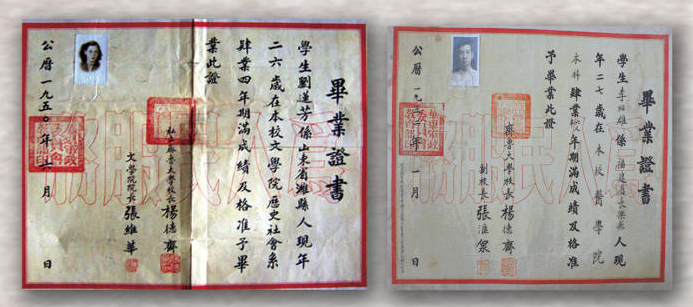 畢業證書
學生劉蓮芳係山東省濰縣人現年
二六歲在本校文學院歷史社會系
肄業四年期滿成績及格准予畢
業此證
私立齊魯大學校長楊德齋
文學院院長張維華
公曆一九五〇年六月 日
為人民服務
畢業證書
學生李 雄係福建省長樂縣人現
年二七歲在本校醫學院
本科肄業 年期滿成績及格准
予畢業此證
齊魯大學校長楊德齋
副校長張滙泉
公曆一九五 年一月 日
為人民服務